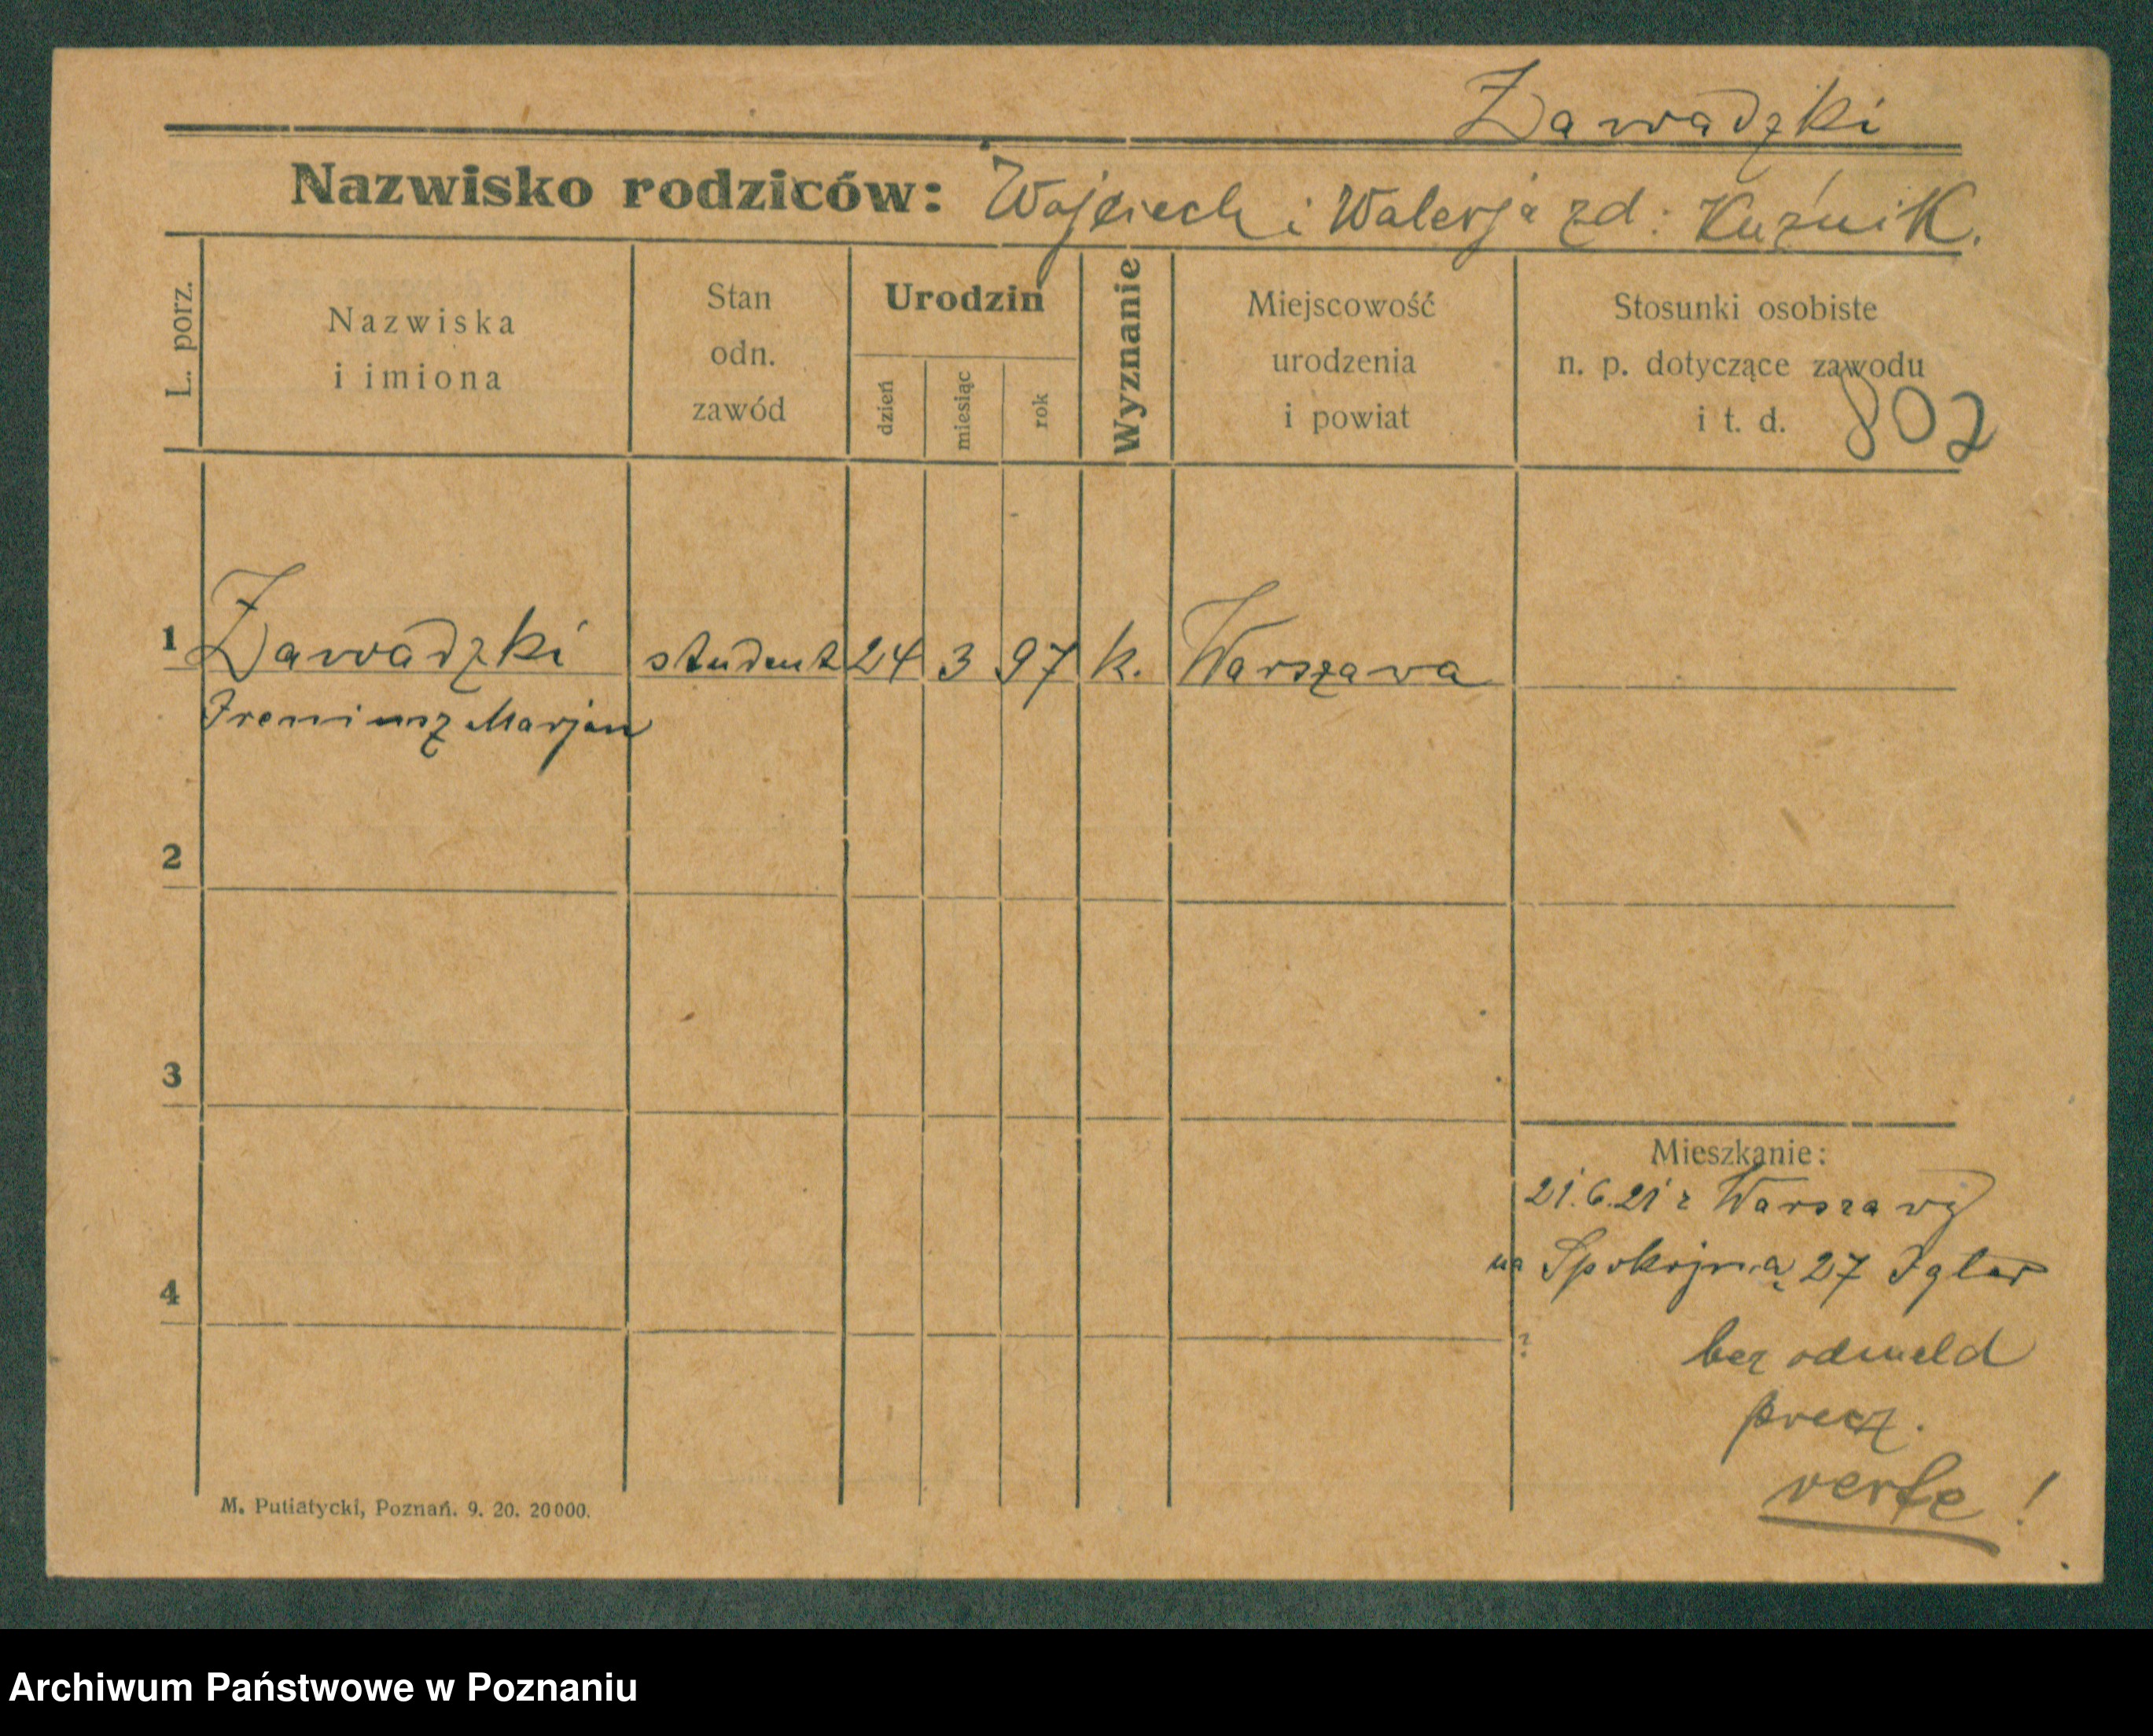 Zawadzki
Nazwisko rodziców: Wojciech i Walerja zd: Kuźnik.
L. porz.
Nazwiska
i imiona
Stan
odn.
zawód
Urodzin
dzień
miesiąc
rok
Wyznanie
Miejscowość
urodzenia
i powiat
Stosunki osobiste
n. p. dotyczące zawodu
i t. d.
802
1 Zawadzki student 24 3 97 k. Warszawa
Ireniusz Marjan
2
3
Mieszkanie:
21.6.21 z Warszawy
na Spokojną 27 Igler
4
? bez odmeld
precz.
verte!
M. Putiatycki, Poznań. 9. 20. 20000.
Archiwum Państwowe w Poznaniu